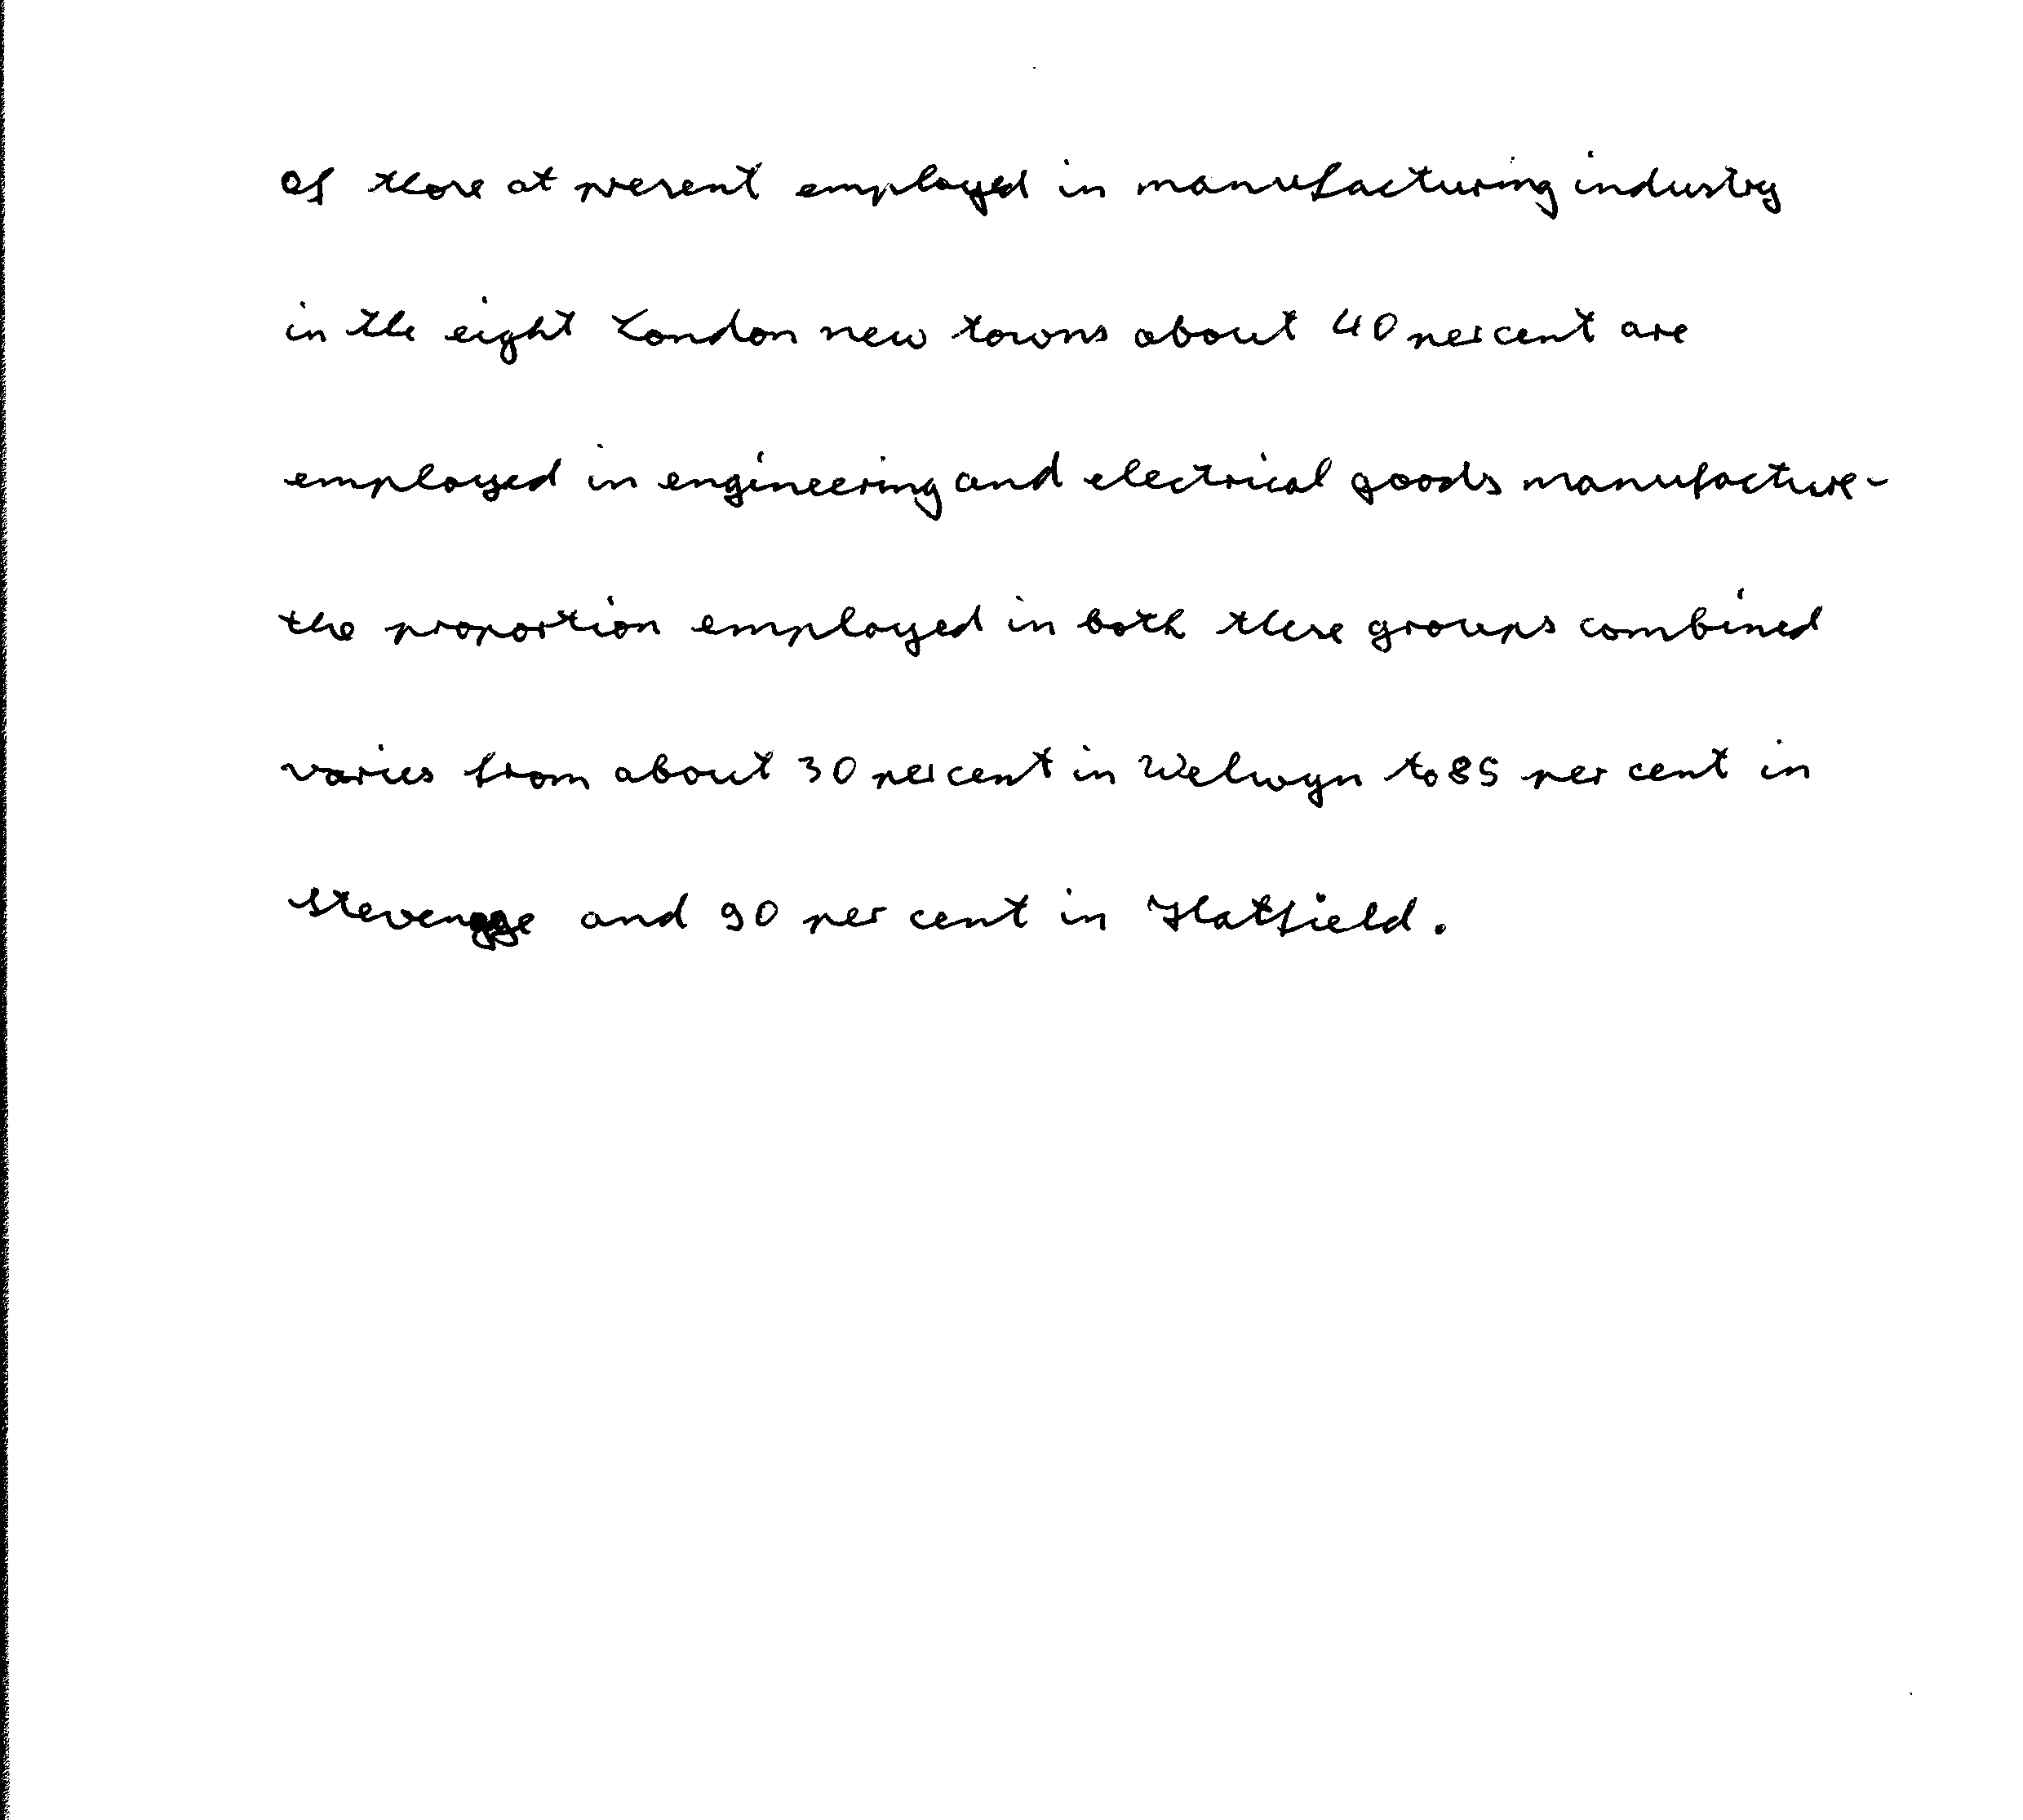 Of those at present employed in manufacturing industry
in the eight London new towns about 40 per cent are
employed in engineering and electrical goods manufacture -
the proportion employed in both these groups combined
varies from about 30 per cent in Welwyn to 85 per cent in
Stevenage and 90 per cent in Hatfield.